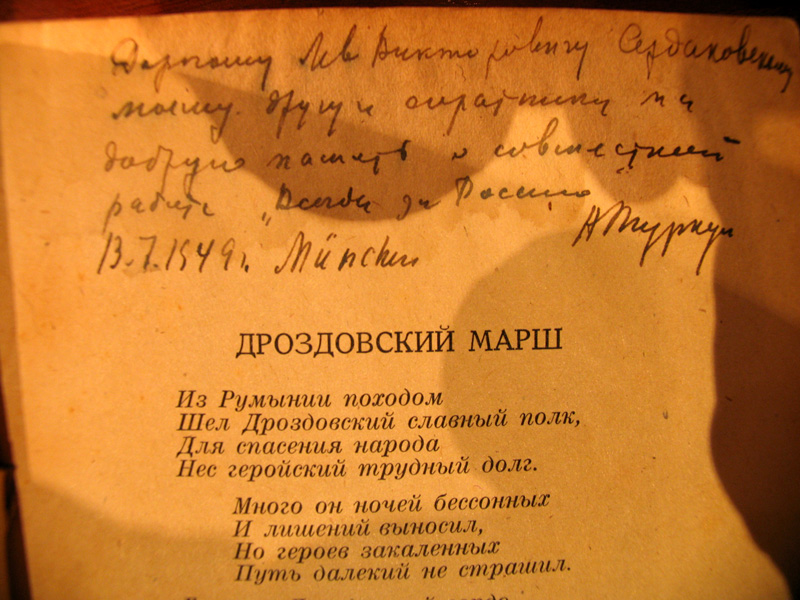 Дорогому Лев Викторовичу Сердаковскому
моему другу и соратнику на
добрую память о совместной
работе „Всегда за Россию"
А Туркул
13.7.1949 г. München
ДРОЗДОВСКИЙ МАРШ
Из Румынии походом
Шел Дроздовский славный полк,
Для спасения народа
Нес геройский трудный долг.
Много он ночей бессонных
И лишений выносил,
Но героев закаленных
Путь далекий не страшил.